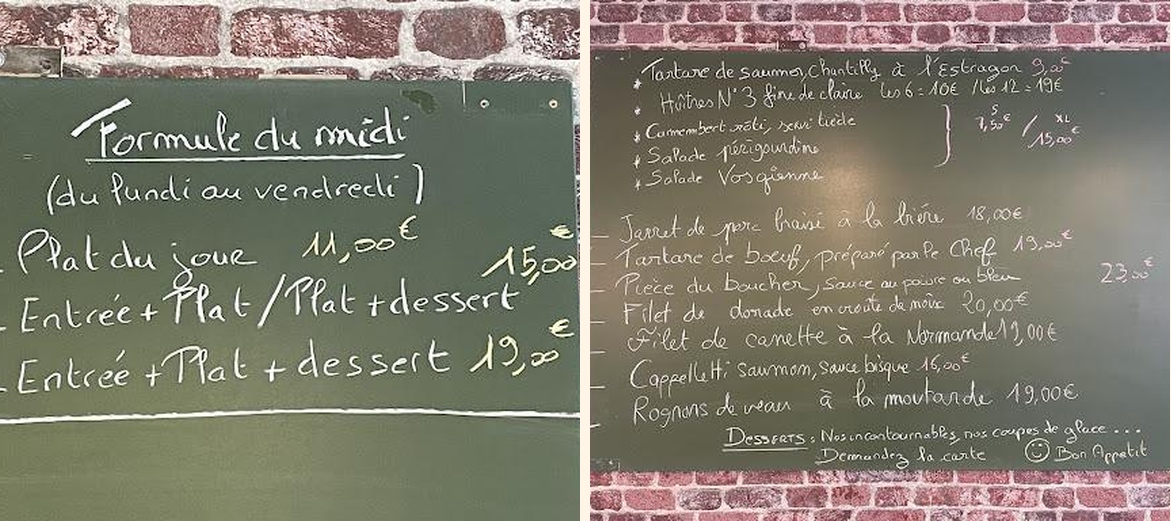 Formule du midi
(du lundi au vendredi)
- Plat du jour 11,00€
- Entrée + Plat / Plat + dessert 15,00€
- Entrée + Plat + dessert 19,00€
Tartare de saumon, chantilly à l'Estragon 9,00€
* Huîtres N°3 fine de claire les 6 = 10€ / les 12 = 19€
* Camembert rôti, servi tiède
* Salade périgourdine
* Salade Vosgienne
S 7,50€ / XL 15,00€
- Jarret de porc braisé à la bière 18,00€
- Tartare de boeuf, préparé par le Chef 19,00€
- Pièce du boucher, sauce au poivre ou bleu 23,00€
- Filet de dorade en croûte de noix 20,00€
- Filet de canette à la Normande 19,00€
- Cappelletti saumon, sauce bisque 16,00€
- Rognons de veau à la moutarde 19,00€
DESSERTS : Nos incontournables, nos coupes de glace ...
Demandez la carte Bon Appétit